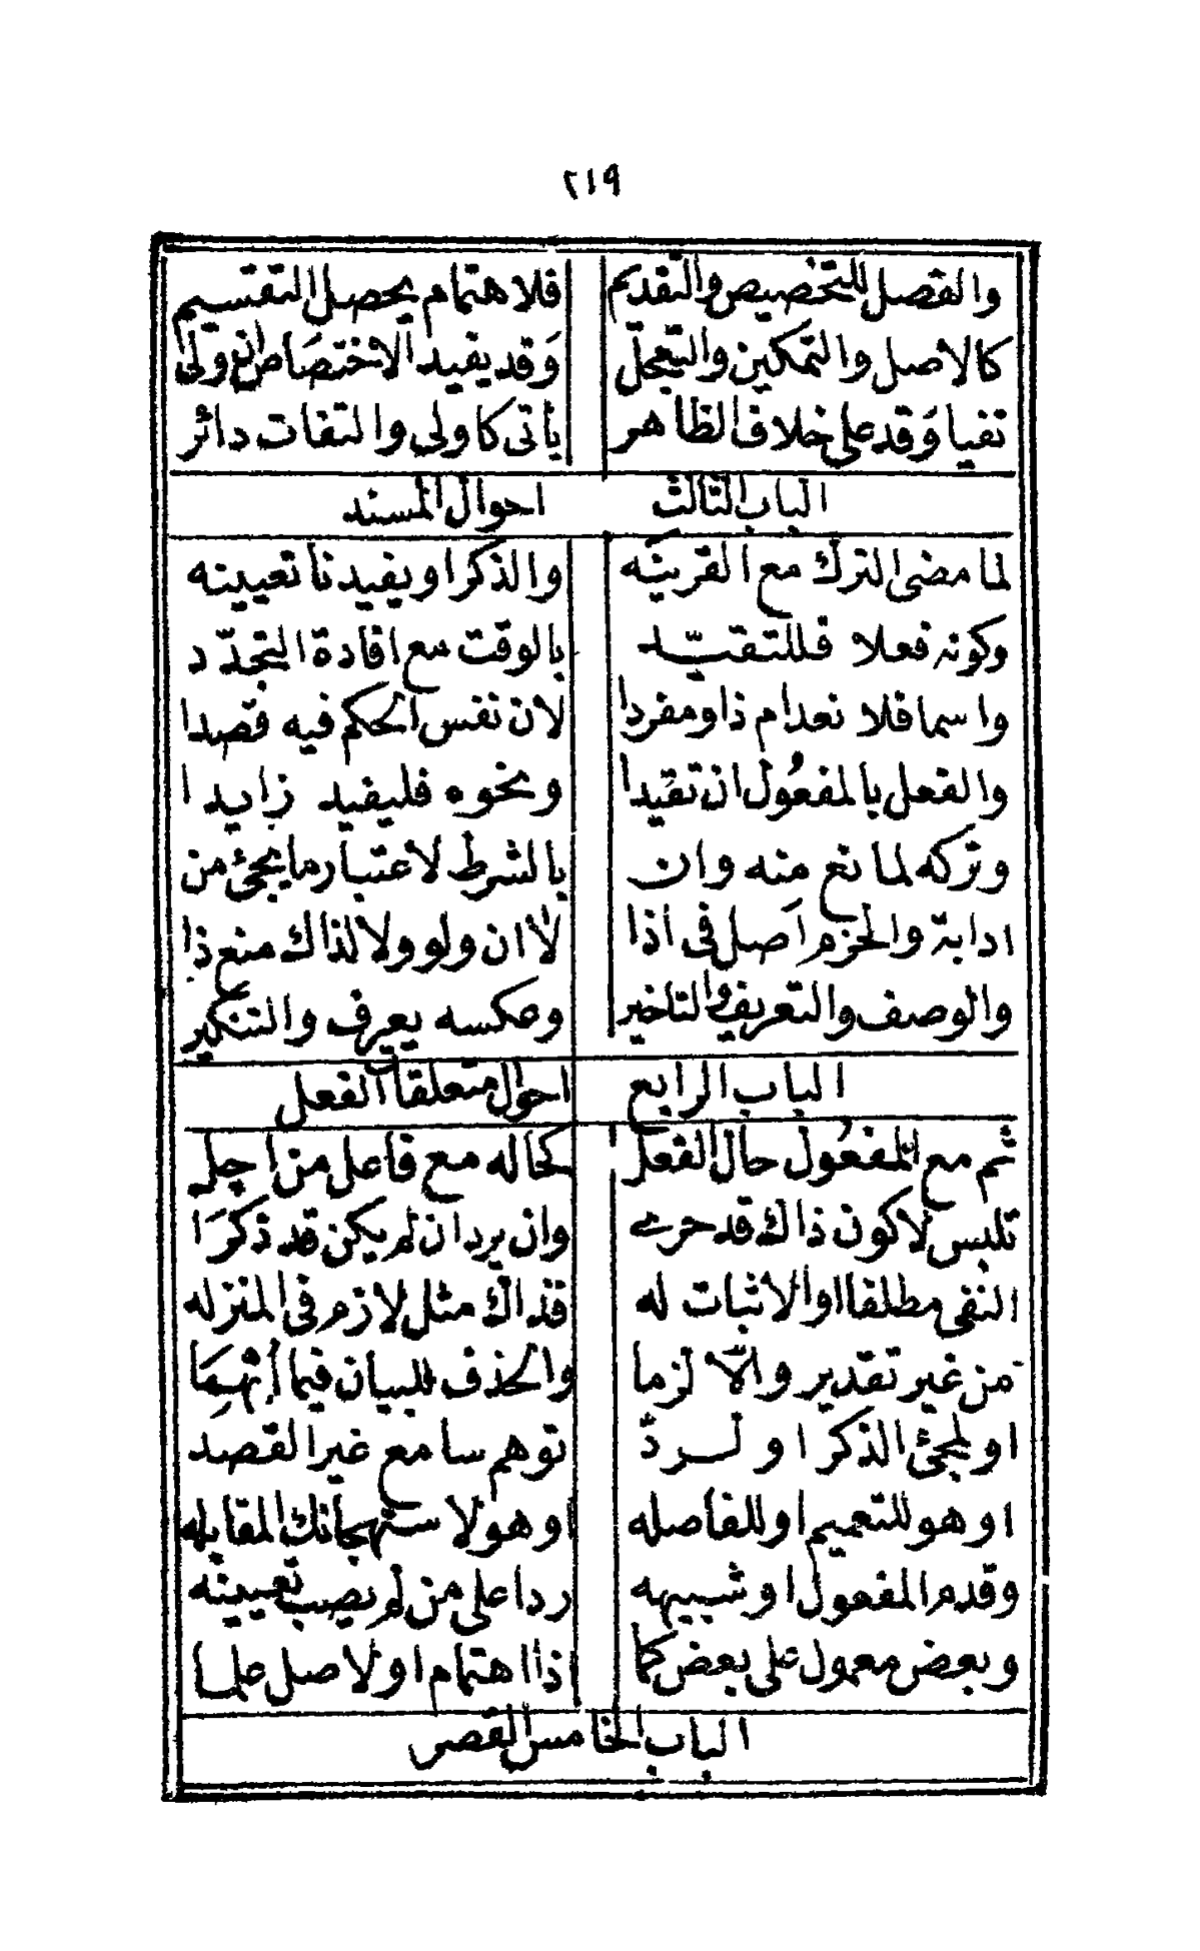 ٢١٩
والفصل للتخصيص والتقديم فلاهتمام يحصل التقسيم
كالاصل والتمكين والتعجل وقد يفيد الاختصاص ان ولى
نفيا وقد على خلاف الظاهر يأتى كاولى والتفات دائر
الباب الثالث احوال المسند
لما مضى الترك مع القرينه والذكر او يفيدنا تعيينه
وكونه فعلا فللتقيد بالوقت مع افادة التجدد
واسما فلا نعدام ذا ومفردا لان نفس الحكم فيه قصدا
والفعل بالمفعول ان تقيدا ونحوه فليفيد زايدا
وتركه لمانع منه وان بالشرط لاعتبار ما يجئ من
اداته والجزم اصل فى اذا لا ان ولو ولا لذاك منع ذا
والوصف والتعريف والتاخير وعكسه يعرف والتنكير
الباب الرابع احوال متعلقات الفعل
ثم مع المفعول حال الفعل كحاله مع فاعل من اجل
تلبس لا كون ذاك قد جرى وان يرد ان لم يكن قد ذكرا
النفى مطلقا او الاثبات له فذاك مثل لازم فى المنزله
من غير تقدير والا لزما والحذف للبيان فيما أبهما
او لمجئ الذكر او لرد توهم سامع غير القصد
او هو للتعميم او للفاصله او هو لاستهجانك المقابله
وقدم المفعول او شبيهه ردا على من لم يصب تعيينه
وبعض معمول على بعض كما اذا اهتمام او لاصل علما
الباب الخامس القصر